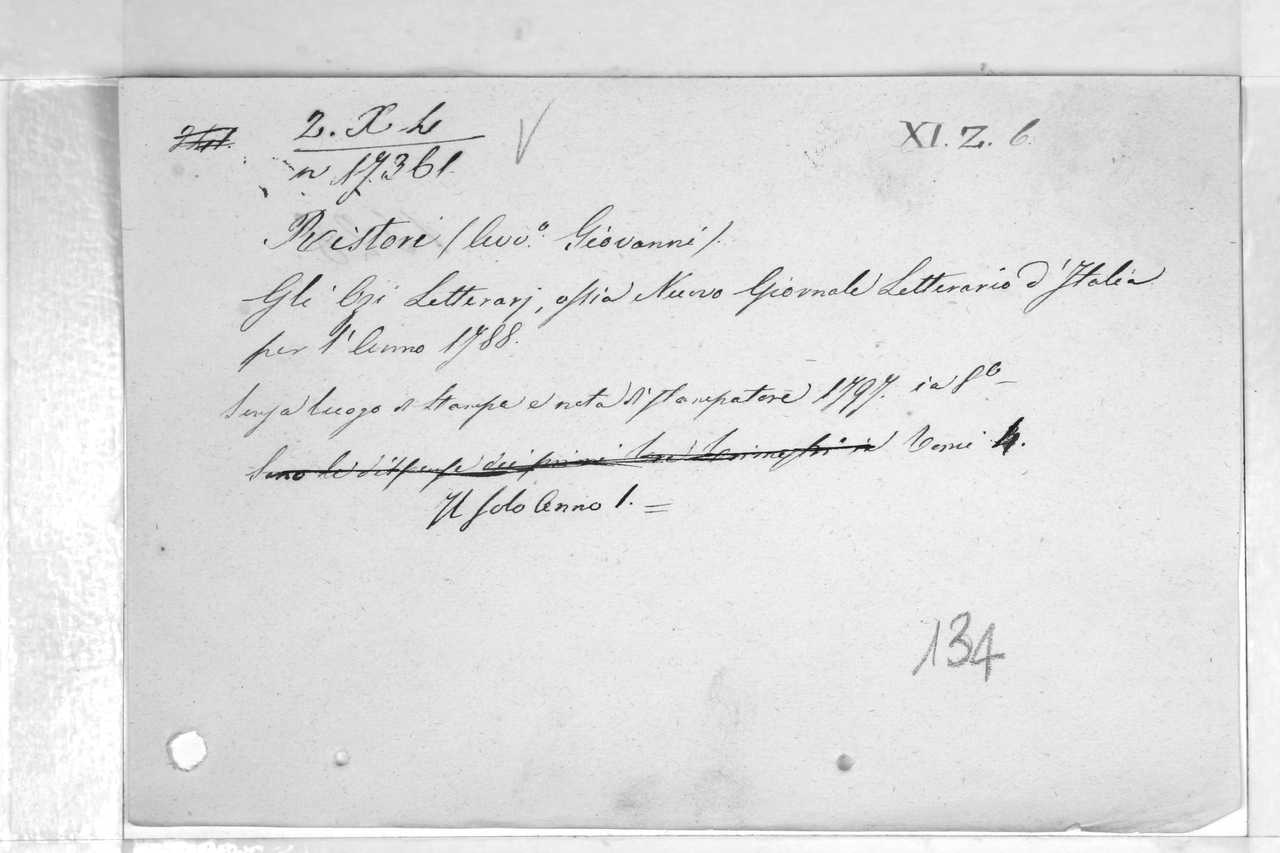 2. X 4
XI. Z. 6.
n 17361.
Ristori (Avv.º Giovanni).
Gli Ozi Letterarj, ossia Nuovo Giornale Letterario d'Italia
per l'Anno 1788.
Senza luogo di Stampa e nota di stampatore 1797. in 8º
Sono le dispense dei primi tre Trimestri in Tomi 4.
Il solo Anno 1. =
134